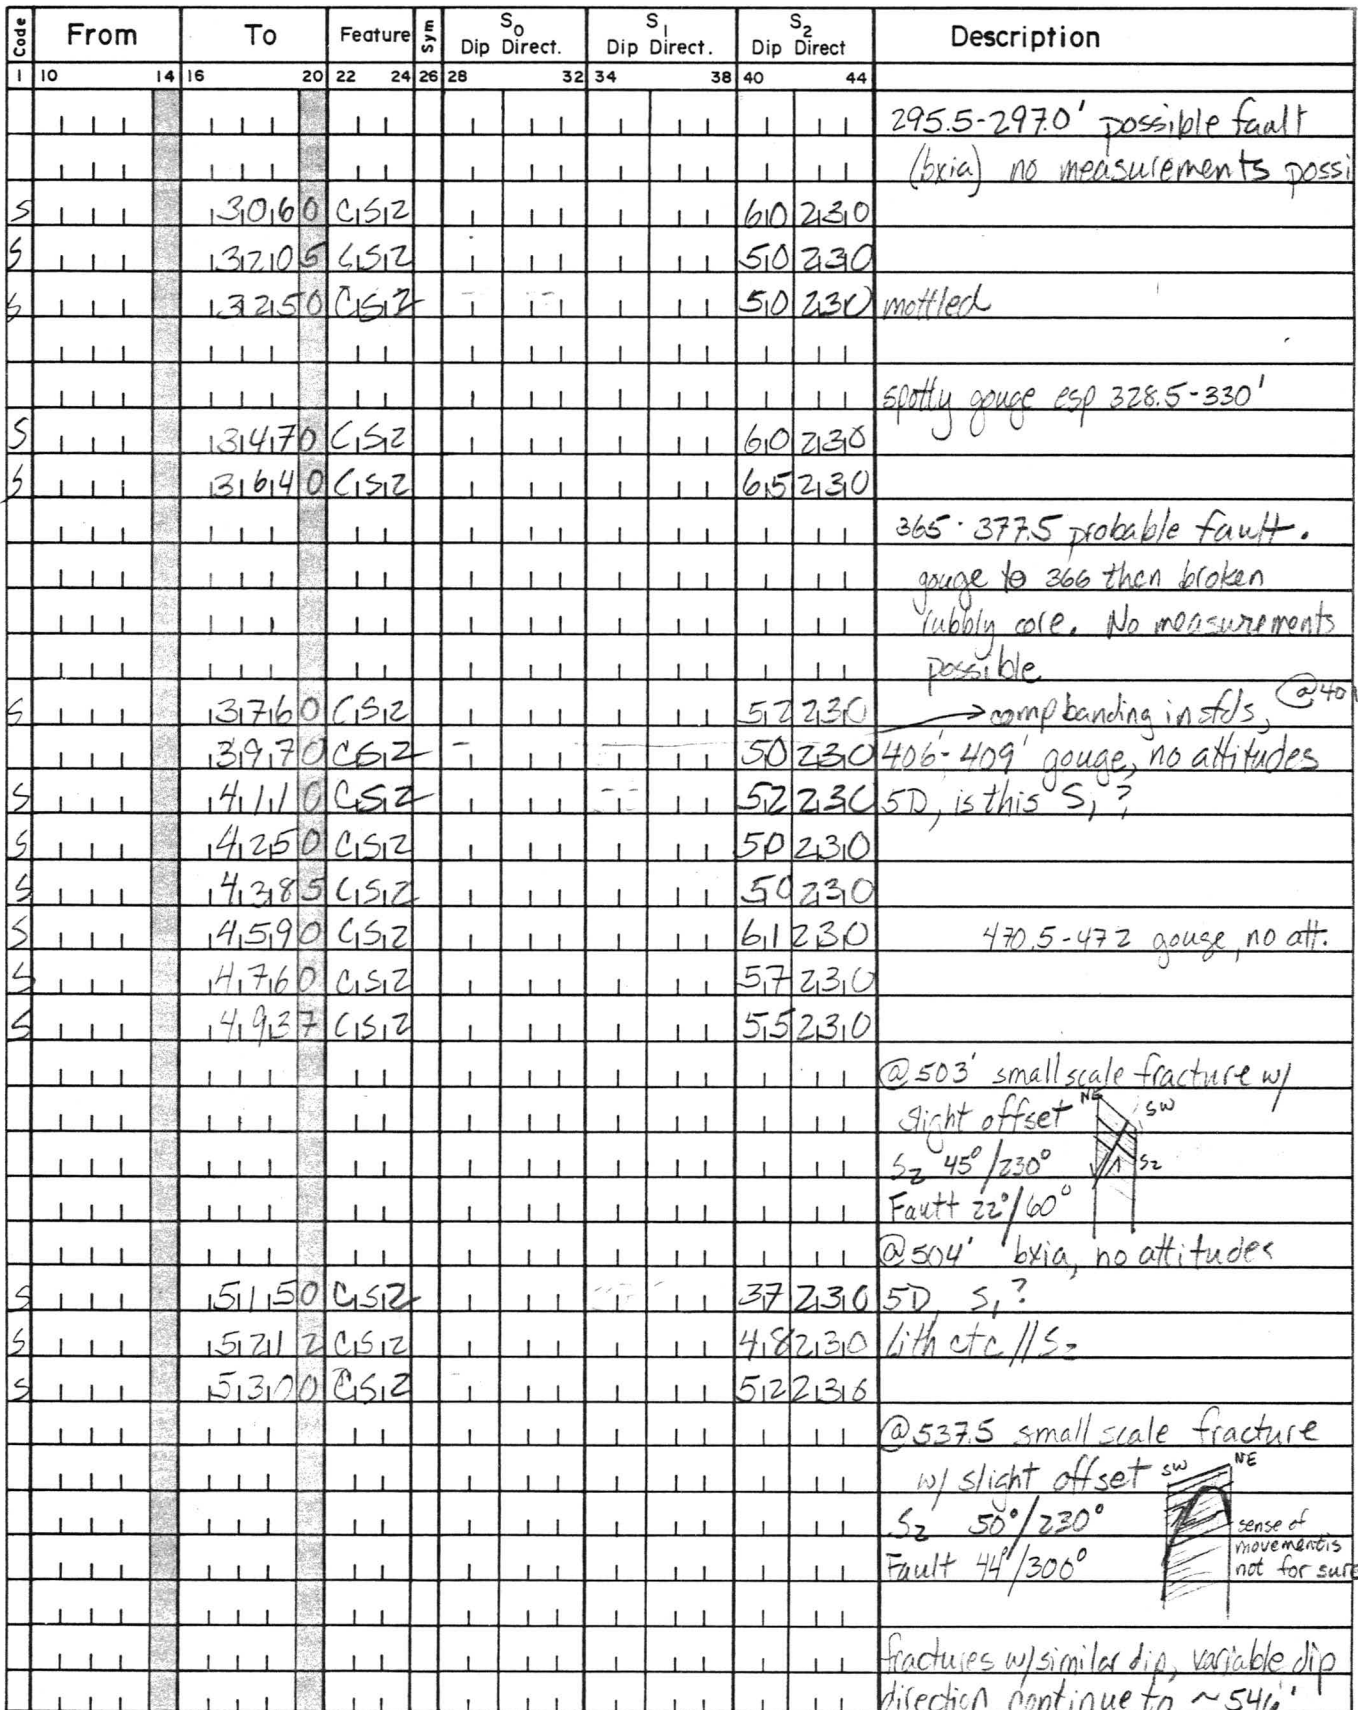 Code From To Feature Sym S0 Dip Direct. S1 Dip Direct. S2 Dip Direct Description
1 10 14 16 20 22 24 26 28 32 34 38 40 44
295.5-297.0' possible fault
(bxia) no measurements possi
S 3060 CS2 60 230
S 3205 CS2 50 230
S 3250 CS2 50 230 mottled
spotty gouge esp 328.5-330'
S 3470 CS2 60 230
S 3640 CS2 65 230
365-377.5 probable fault.
gouge to 366 then broken
rubbly core. No measurements
possible
S 3760 CS2 52 230 → comp banding in sfds, @401
3970 CS2 50 230 406-409' gouge, no attitudes
S 4110 CS2 52 230 5D, is this S1?
S 4250 CS2 50 230
S 4385 CS2 50 230
S 4590 CS2 61 230 470.5-472 gouge, no att.
S 4760 CS2 57 230
S 4937 CS2 55 230
@503' small scale fracture w/
slight offset NE SW
S2 45°/230° S2
Fault 22°/60°
@504' bxia, no attitudes
S 5150 CS2 37 230 5D, S1?
S 5212 CS2 48 230 Lith ctc // S2
S 5300 CS2 52 236
@537.5 small scale fracture
w/ slight offset SW NE
S2 50°/230° sense of
movement is
Fault 44°/300° not for sure
fractures w/ similar dip, variable dip
direction continue to ~546'